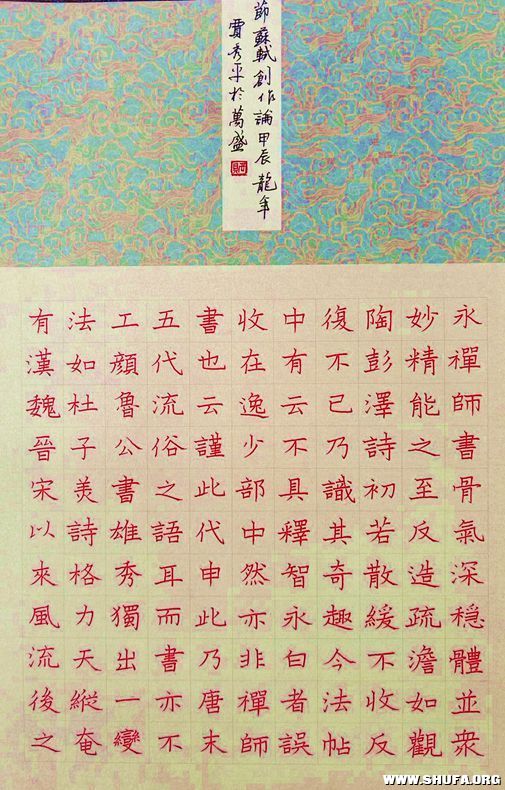 節蘇軾創作論甲辰龍年
賈秀平於萬盛
永禪師書骨氣深穩體並衆
妙精能之至反造疏澹如觀
陶彭澤詩初若散緩不收反
復不己乃識其奇趣今法帖
中有云不具釋智永白者誤
收在逸少部中然亦非禪師
書也云謹此代申此乃唐末
五代流俗之語耳而書亦不
工顏魯公書雄秀獨出一變
法如杜子美詩格力天縱奄
有漢魏晉宋以來風流後之
WWW.SHUFA.ORG